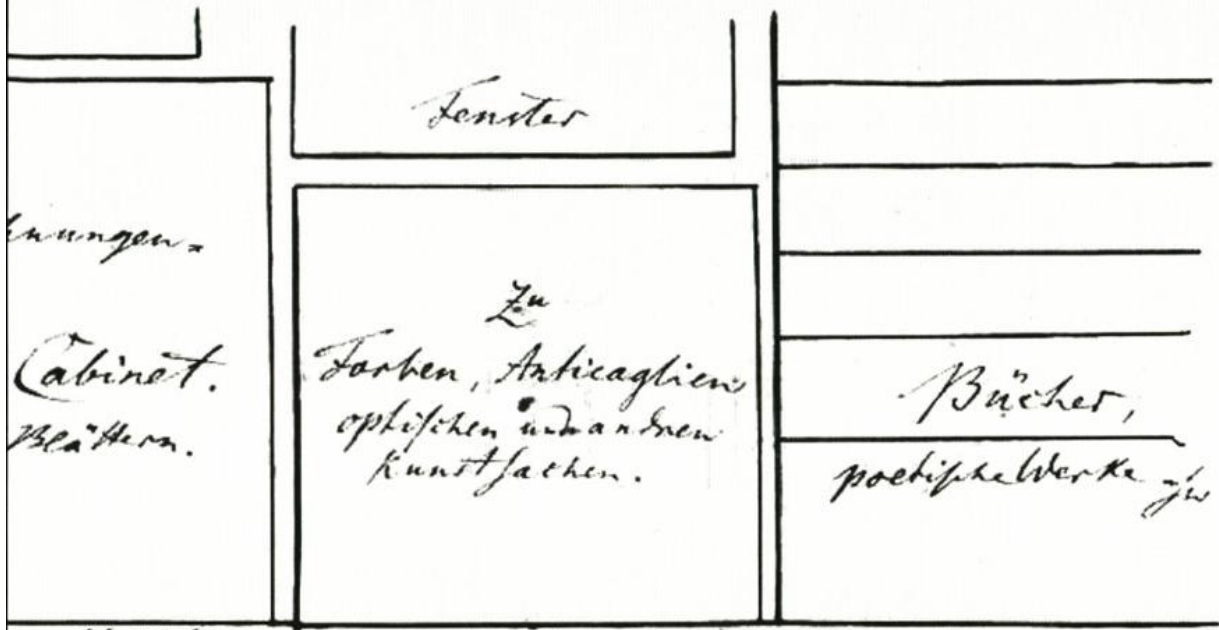 Fenster
hnungen=
Cabinet.
Blättern.
Zu
Farben, Anticaglien
optischen und andren
Kunstsachen.
Bücher,
poetische Werke